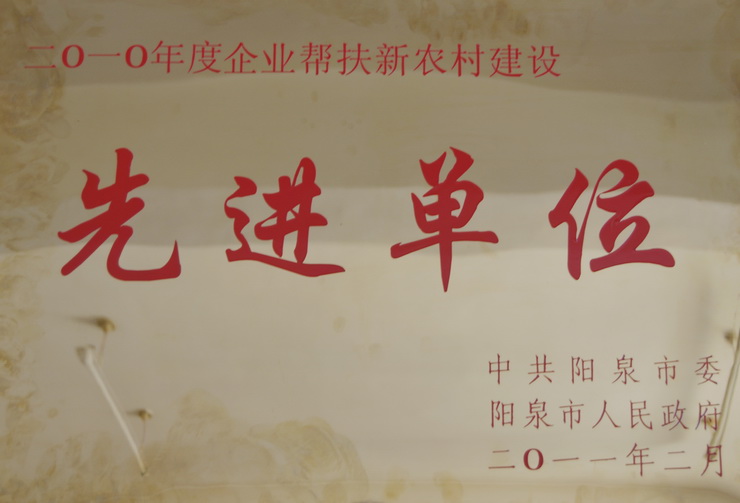 二O一O年度企业帮扶新农村建设
先进单位
中共阳泉市委
阳泉市人民政府
二O一一年二月